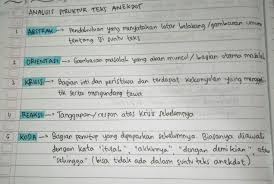 ANALISIS STRUKTUR TEKS ANEKDOT
1 ABSTRAK → Pendahuluan yang menyatakan latar belakang / gambaran umum
tentang isi suatu teks
2 ORIENTASI → Gambaran masalah yang akan muncul / bagian utama masalah
3 KRISIS → Bagian inti dari peristiwa dan terdapat kekonyolan yang menggeli
tik serta mengundang tawa
4 REAKSI → Tanggapan / respon atas krisis sebelumnya
5 KODA → Bagian penutup yang dipaparkan sebelumnya. Biasanya diawali
dengan kata "itulah", "akhirnya", "dengan demikian", atau
"sehingga" (bisa tidak ada dalam suatu teks anekdot).